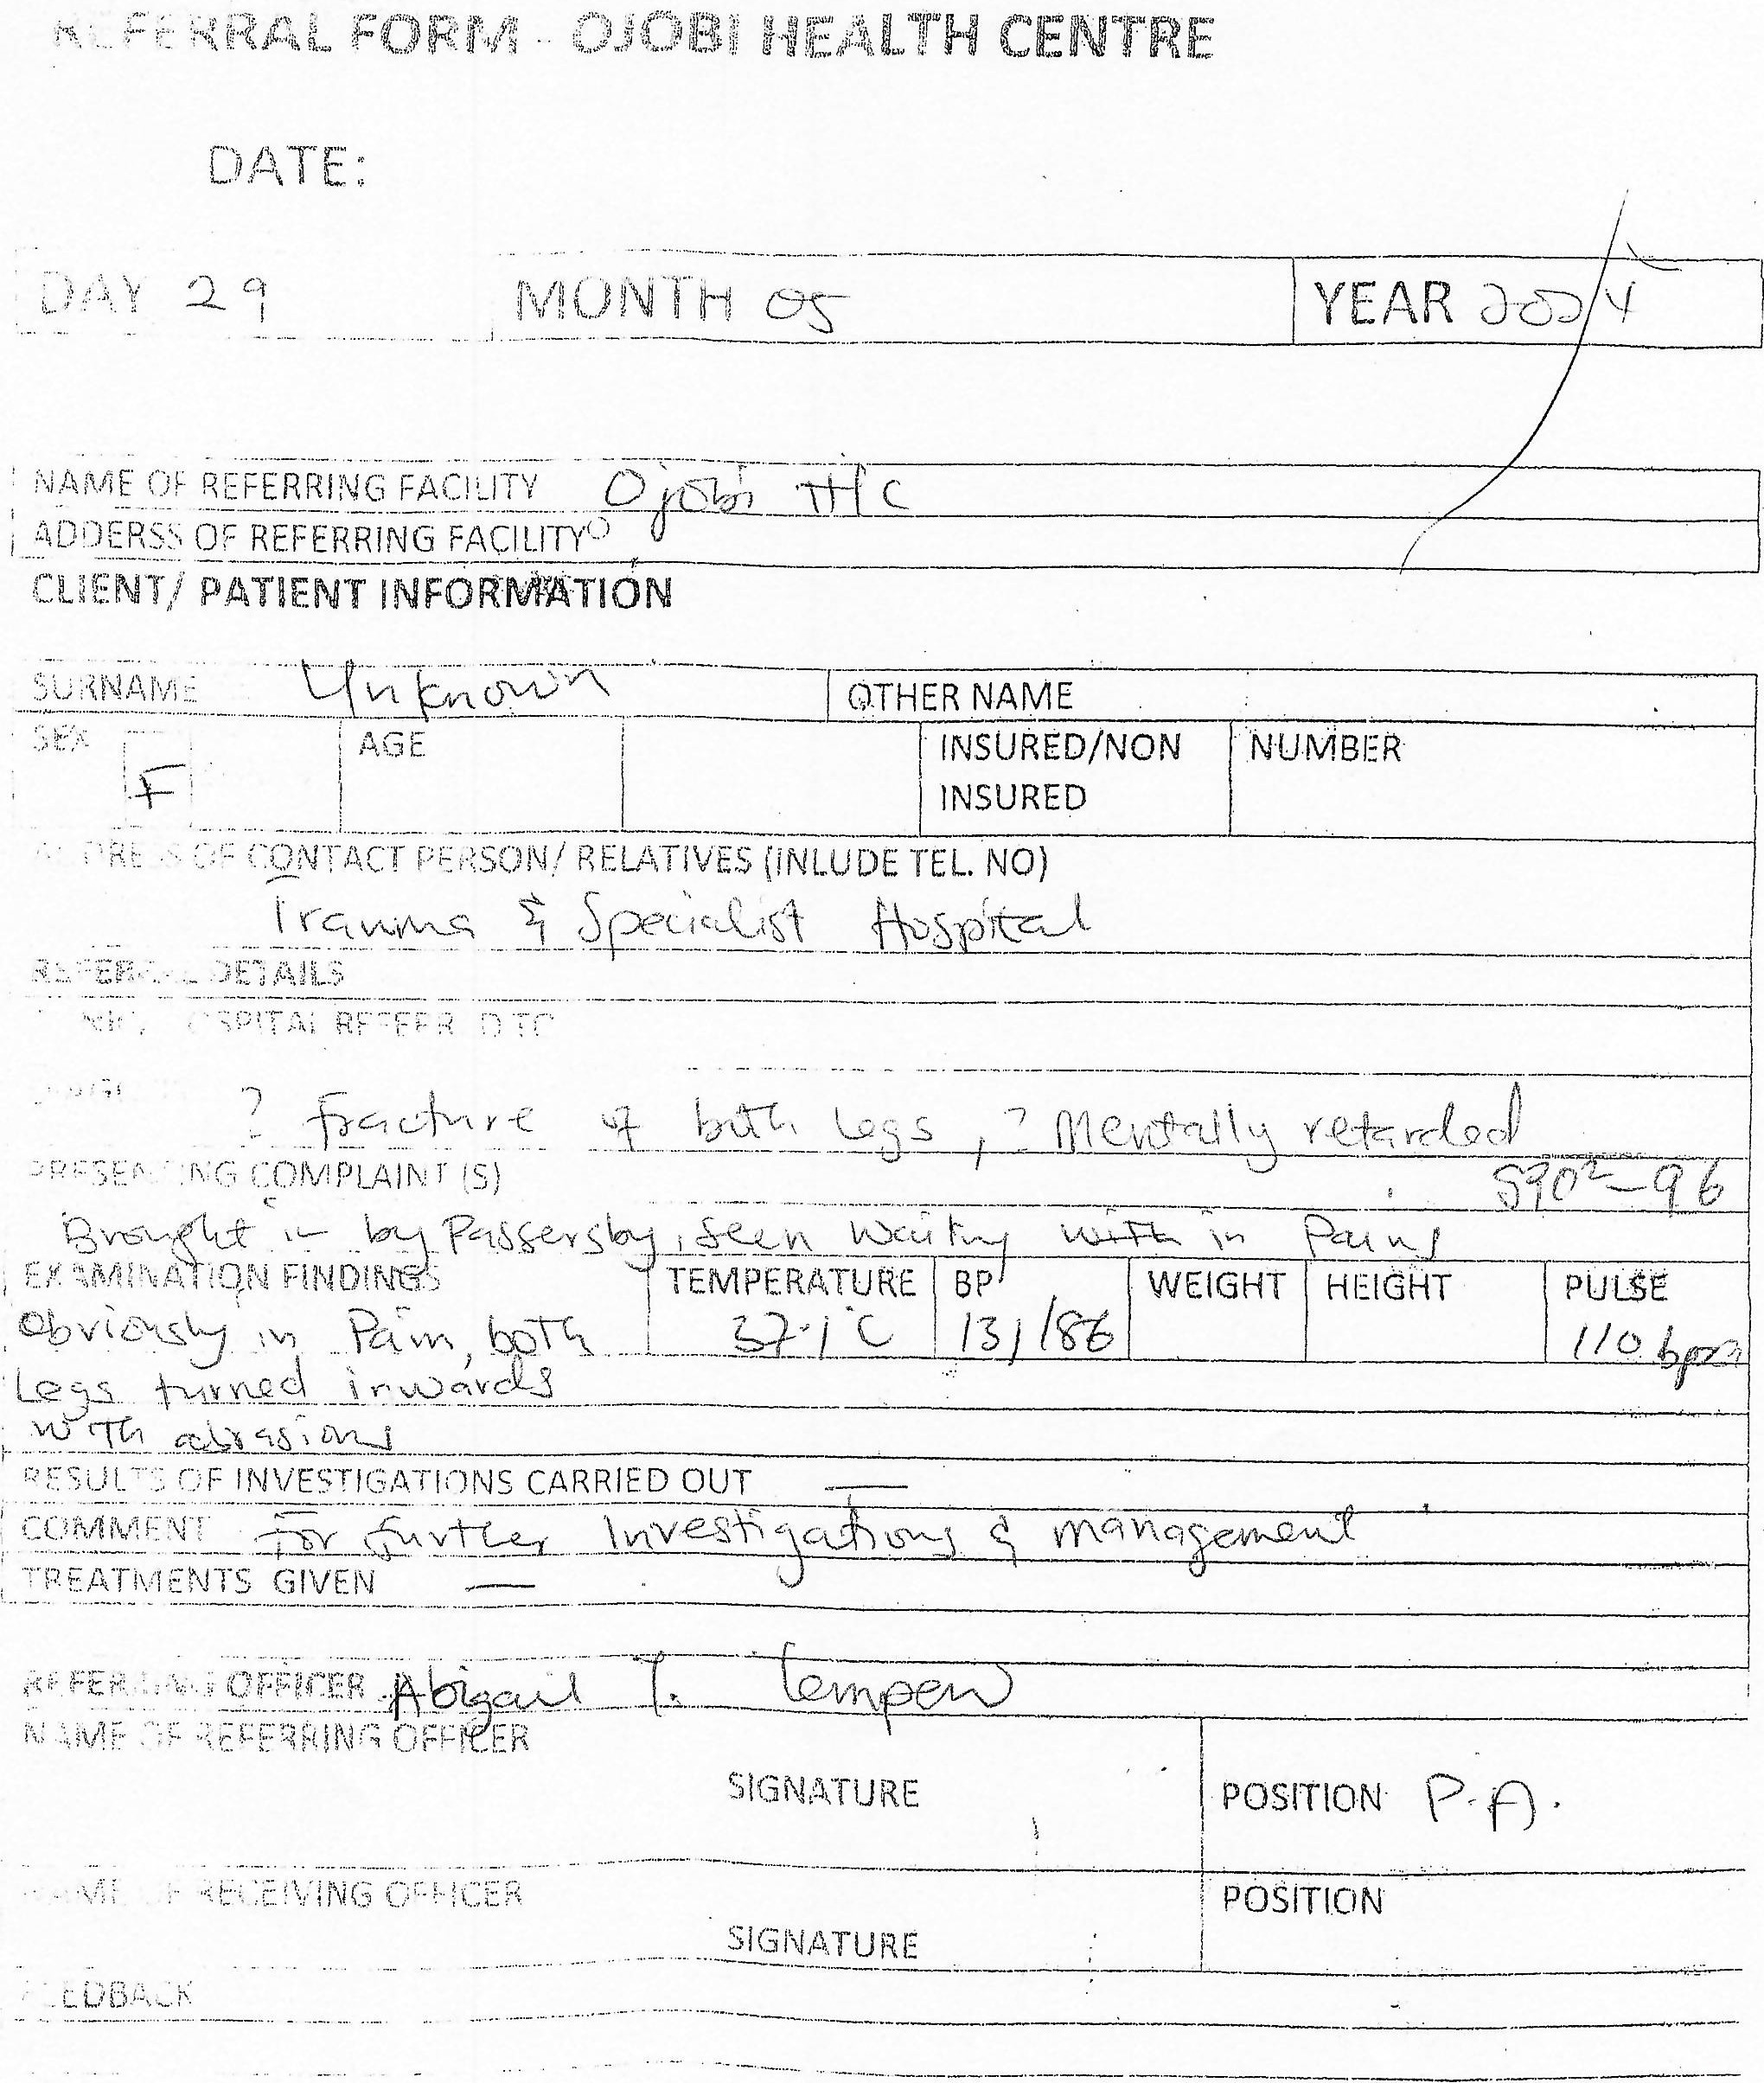 REFERRAL FORM - OJOBI HEALTH CENTRE
DATE:
DAY 29 MONTH 05 YEAR 2024
NAME OF REFERRING FACILITY Ojobi H/C
ADDERSS OF REFERRING FACILITY
CLIENT/ PATIENT INFORMATION
SURNAME Unknown OTHER NAME
SEX F AGE INSURED/NON INSURED NUMBER
ADDRESS OF CONTACT PERSON/ RELATIVES (INLUDE TEL. NO)
Trauma & Specialist Hospital
REFERRAL DETAILS
HOSPITAL REFERRED TO
? fracture of both legs, ? Mentally retarded
PRESENTING COMPLAINT (S)
Brought in by Passersby, seen in Pains
EXAMINATION FINDINGS TEMPERATURE BP WEIGHT HEIGHT PULSE
Obviously in Pain, both 37.1°C 131/86 110 bpm
Legs turned inwards
with abrasions
RESULTS OF INVESTIGATIONS CARRIED OUT —
COMMENT For further Investigations & management
TREATMENTS GIVEN —
REFERRING OFFICER Abigail T.
NAME OF REFERRING OFFICER
SIGNATURE POSITION P.A.
NAME OF RECEIVING OFFICER POSITION
SIGNATURE
FEEDBACK